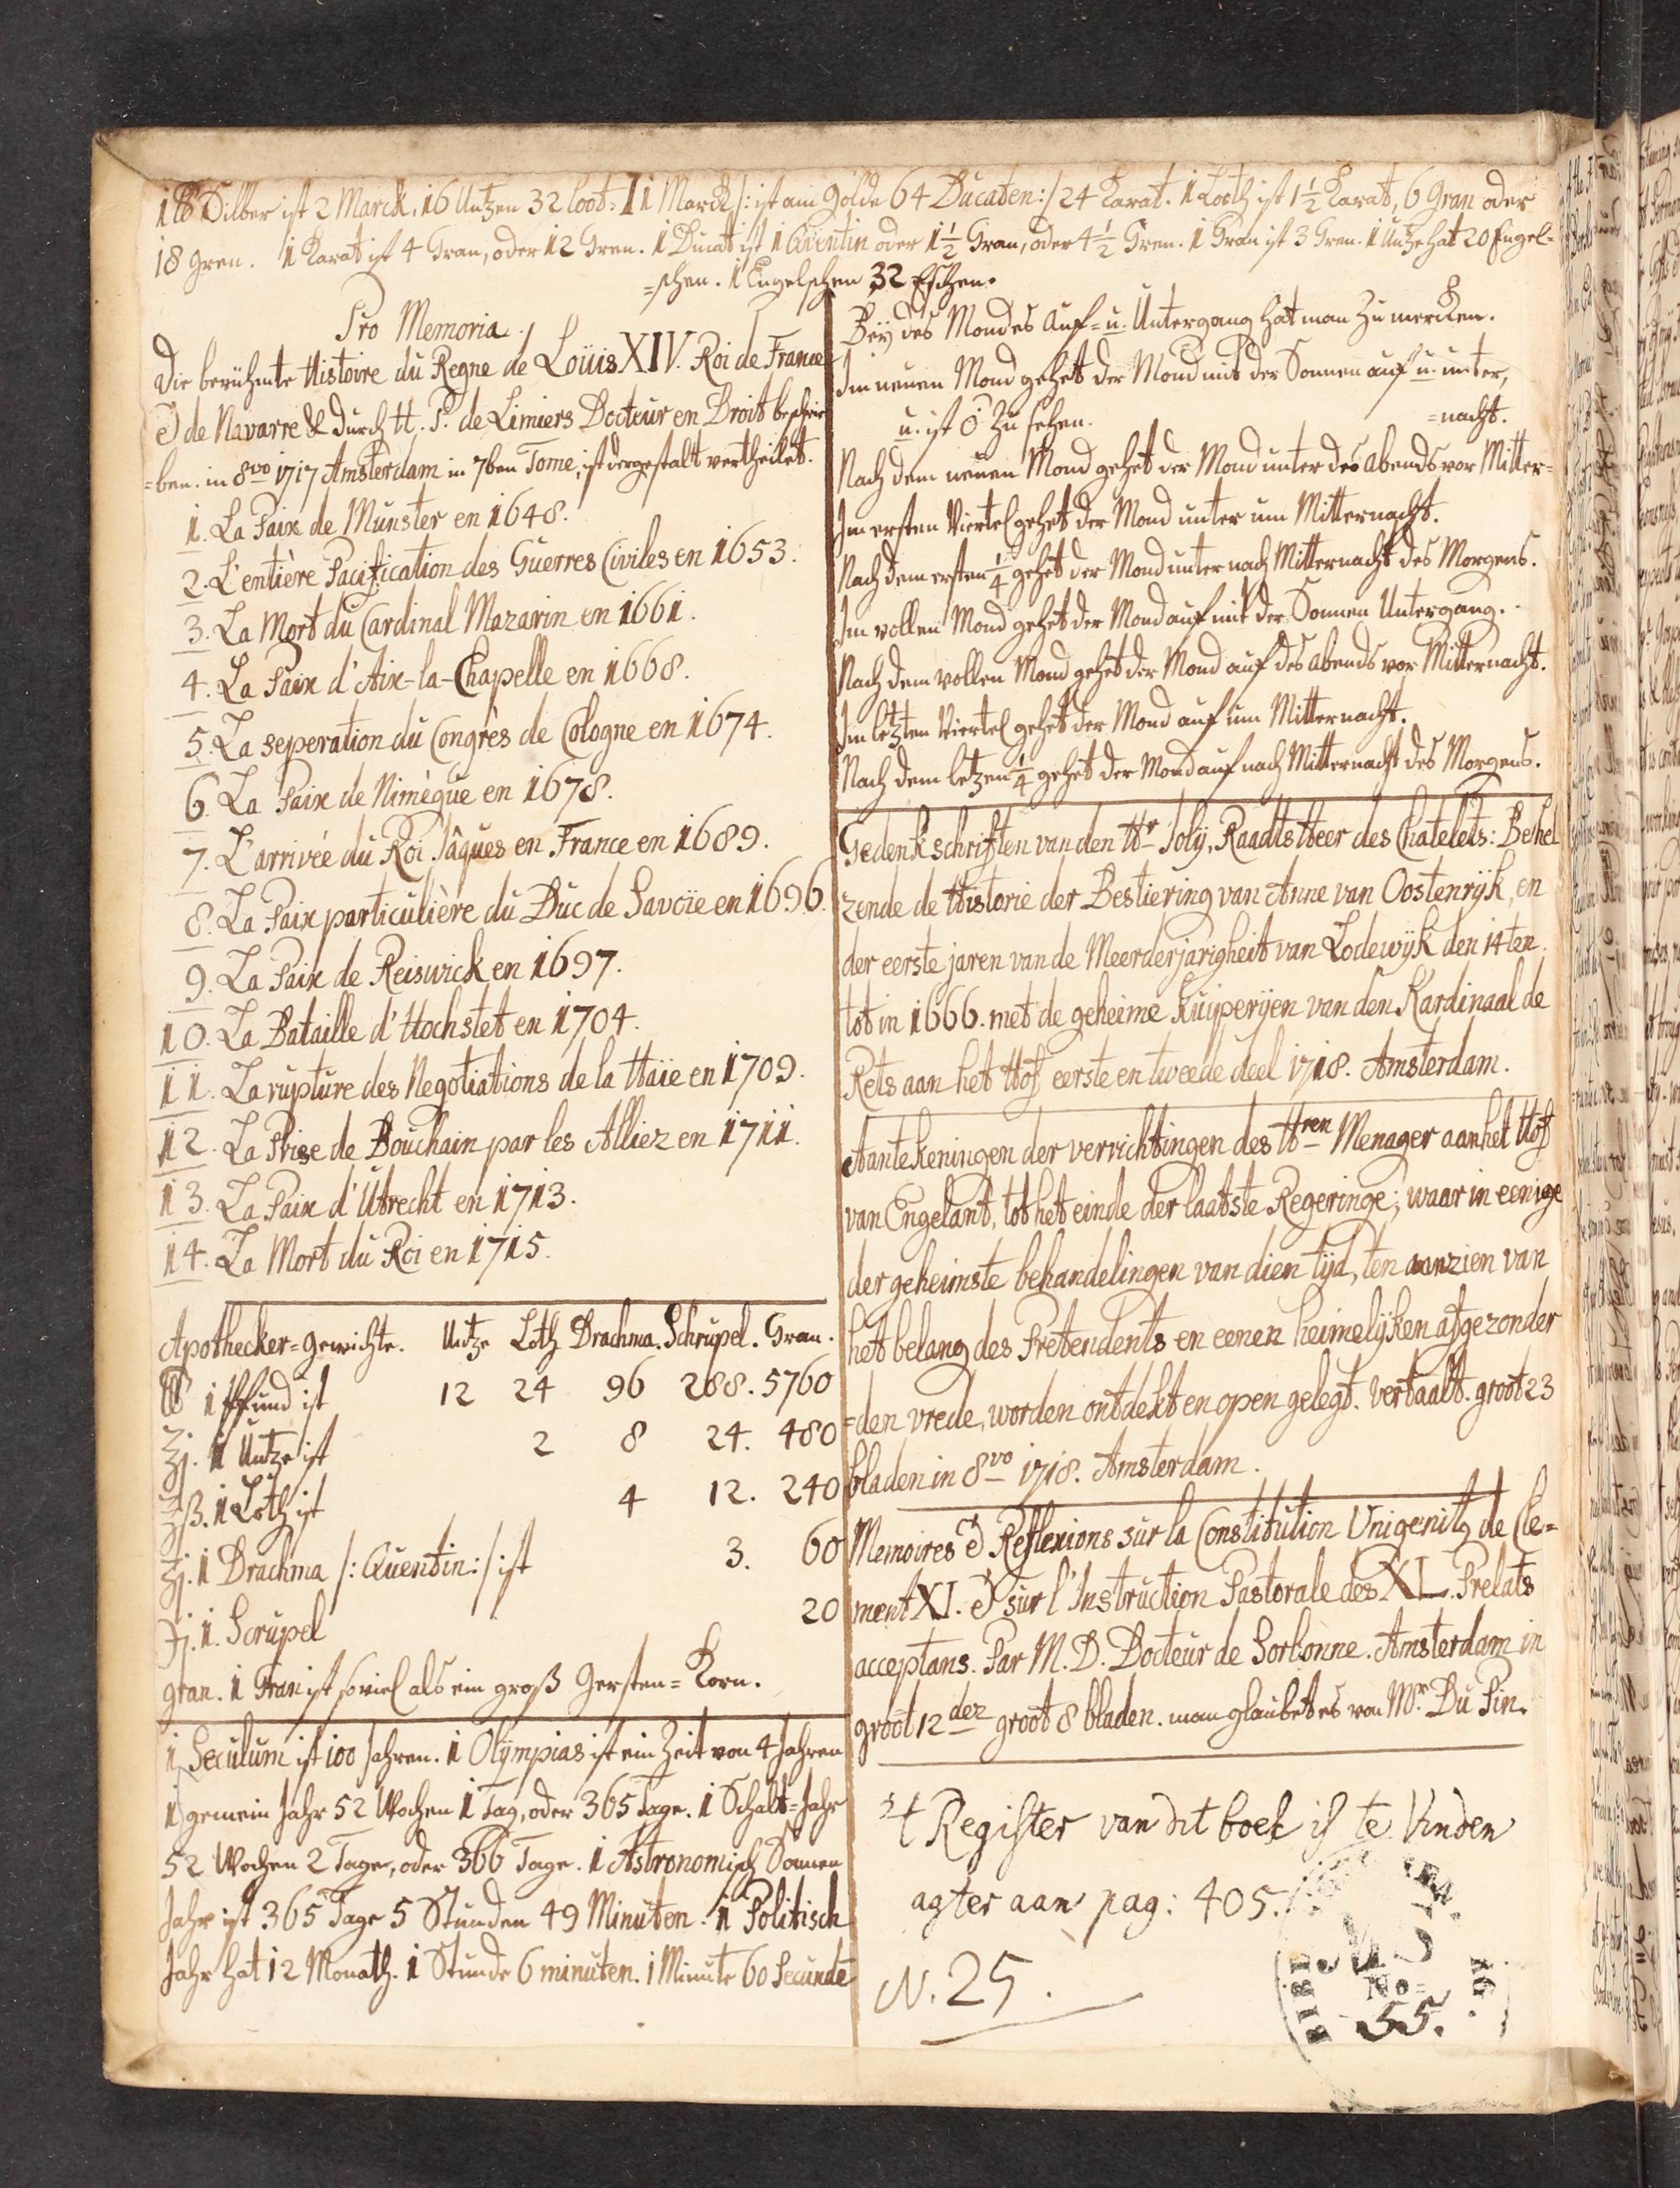 1 ℔ Silber ist 2 Marck, 16 Untzen 32 loot: I 1 Marck /: ist am Golde 64 Ducaten :/ 24 Karat. 1 Loth ist 1 1/2 Karat, 6 Gran oder
18 Gren. 1 Karat ist 4 Gran, oder 12 Gren. 1 Ducat ist 1 Quentin oder 1 1/2 Gran, oder 4 1/2 Gren. 1 Gran ist 3 Gren. 1 Untze hat 20 Engel=
=schen. 1 Engelschen 32 Eschen.
Pro Memoria.
Die berühmte Histoire du Regne de Loüis XIV. Roi de France
& de Navarre & durch H. P. de Limiers Docteur en Droit beschrie
=ben. in 8vo 1717 Amsterdam in 7ben Tome, ist dergestalt vertheilet.
1. La Paix de Munster en 1648.
2. L'entière Pacification des Guerres Civiles en 1653.
3. La Mort du Cardinal Mazarin en 1661.
4. La Paix d'Aix-la-Chapelle en 1668.
5. La seperation du Congrès de Cologne en 1674.
6. La Paix de Nimègue en 1678.
7. L'arrivée du Roi Jâques en France en 1689.
8. La Paix particulière du Duc de Savoïe en 1696.
9. La Paix de Reiswick en 1697.
10. La Bataille d'Hochstet en 1704.
11. La rupture des Negotiations de la Haïe en 1709.
12. La Prise de Bouchain par les Alliez en 1711.
13. La Paix d'Utrecht en 1713.
14. La Mort du Roi en 1715.
Apothecker=Gewichte. Untze Loth Drachma. Schrupel. Gran.
℔ 1 Pfund ist 12 24 96 288. 5760
℥j. 1 Untze ist 2 8 24. 480
℥ß. 1 Loth ist 4 12. 240
ʒj. 1 Drachma /: Quentin :/ ist 3. 60
℈j. 1. Scrupel 20
gran. 1 Gran ist soviel als ein groß Gersten=Korn.
1 Seculum ist 100 Jahren. 1 Olÿmpias ist ein Zeit von 4 Jahren
1 gemein Jahr 52 Wochen 1 Tag, oder 365 Tage. 1 Schalt=Jahr
52 Wochen 2 Tage, oder 366 Tage. 1 Astronomisch Sonnen
Jahr ist 365 Tage 5 Stunden 49 Minuten. 1 Politisch
Jahr hat 12 Monath. 1 Stunde 6 minuten. 1 Minute 60 Secunde
Beÿ des Mondes Auf= u. Untergang hat man zu mercken.
Im neuen Mond gehet der Mond mit der Sonnen auf u. unter,
u. ist 0 zu sehen. =nacht.
Nach dem neuen Mond gehet der Mond unter des Abends vor Mitter=
Im ersten Viertel gehet der Mond unter um Mitternacht.
Nach dem ersten 1/4 gehet der Mond unter nach Mitternacht des Morgens.
Im vollen Mond gehet der Mond auf mit der Sonnen Untergang.
Nach dem vollen Mond gehet der Mond auf des Abends vor Mitternacht.
Im letzten Viertel gehet der Mond auf um Mitternacht.
Nach dem letzen 1/4 gehet der Mond auf nach Mitternacht des Morgens.
Gedenkschriften van den Hr Jolÿ, Raadts Heer des Chatelets: Behel
zende de Historie der Bestiering van Anne van Oostenrÿk, en
der eerste jaren van de Meerderjarigheit van Lodewÿk den 14ten
tot in 1666. met de geheime Kuiperÿen van den Kardinaal de
Rets aan het Hof eerste en tweede deel 1718. Amsterdam.
Aantekeningen der verrichtingen des Hren Menager aan het Hof
van Engelant, tot het einde der laatste Regeringe; waar in eenige
der geheimste behandelingen van dien tÿd, ten aanzien van
het belang des Pretendents en eenen heimelÿken afgezonder
=den vrede, worden ontdekt en open gelegt. vertaalt. groot 23
bladen in 8vo 1718. Amsterdam.
Memoires & Reflexions sur la Constitution Unigenitq de Cle=
ment XI. & sur l'Instruction Pastorale des XL. Prelats
acceptans. Par M. D. Docteur de Sorbonne. Amsterdam in
groot 12dez groot 8 bladen. man glaubet es von Mr. Du Pin.
't Register van dit boek is te Vinden
agter aan pag: 405.
N. 25.
BIBL
No=
55.